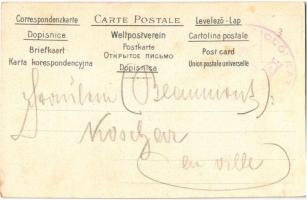 Correspondenzkarte CARTE POSTALE Levelező - Lap
Dopisnice Weltpostverein Cartolina postale
Briefkaart Postkarte Post card
Karta korespondencyjna ОТКРЫТОЕ ПИСЬМО Union postale universelle
Dopisnica
Fräulein (Beaumont)
en ville